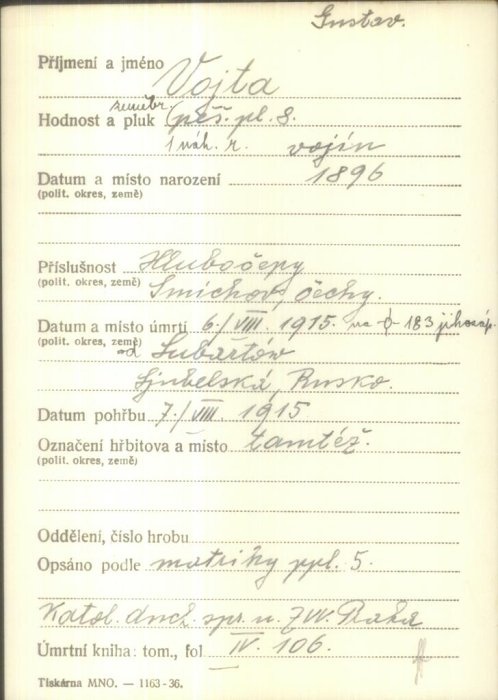 Gustav.
Příjmení a jméno Vojta
zeměbr.
Hodnost a pluk (pěš. pl. 8.
1 náh. r. vojín
Datum a místo narození 1896
(polit. okres, země)
Příslušnost Hlubočepy
(polit. okres, země) Smíchov, Čechy.
Datum a místo úmrtí 6./VIII. 1915. na 183 jihozáp.
(polit. okres, země) od Lubartów
Ljubelská, Rusko.
Datum pohřbu 7./VIII. 1915
Označení hřbitova a místo tamtéž.
(polit. okres, země)
Oddělení, číslo hrobu
Opsáno podle matriky ppl. 5.
Katol. duch. spr. u ZVV. Praha
Úmrtní kniha: tom., fol IV. 106.
Tiskárna MNO. — 1163-36.